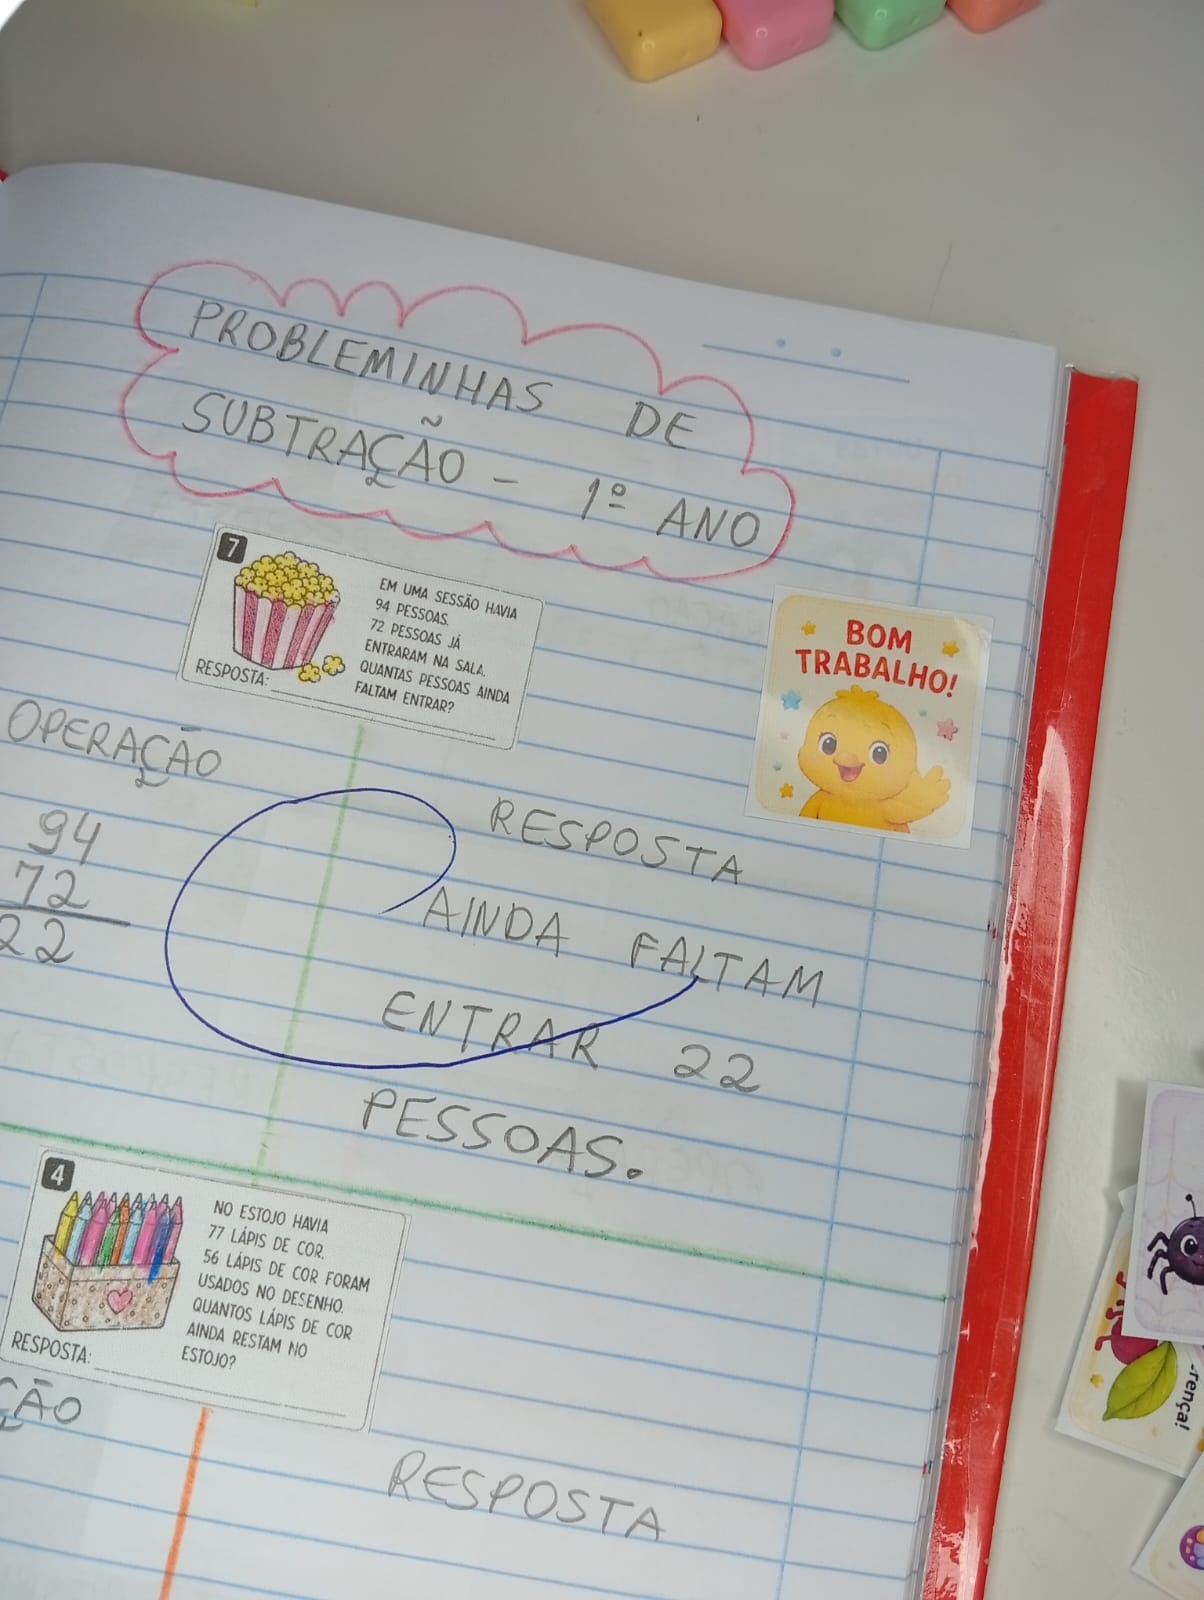 PROBLEMINHAS DE
SUBTRAÇÃO - 1º ANO
7
EM UMA SESSÃO HAVIA
94 PESSOAS.
72 PESSOAS JÁ
ENTRARAM NA SALA.
QUANTAS PESSOAS AINDA
FALTAM ENTRAR?
RESPOSTA:
BOM
TRABALHO!
OPERAÇÃO
94
72
22
RESPOSTA
AINDA FALTAM
ENTRAR 22
PESSOAS.
4
NO ESTOJO HAVIA
77 LÁPIS DE COR.
56 LÁPIS DE COR FORAM
USADOS NO DESENHO.
QUANTOS LÁPIS DE COR
AINDA RESTAM NO
ESTOJO?
RESPOSTA:
ÇÃO
RESPOSTA
rença!